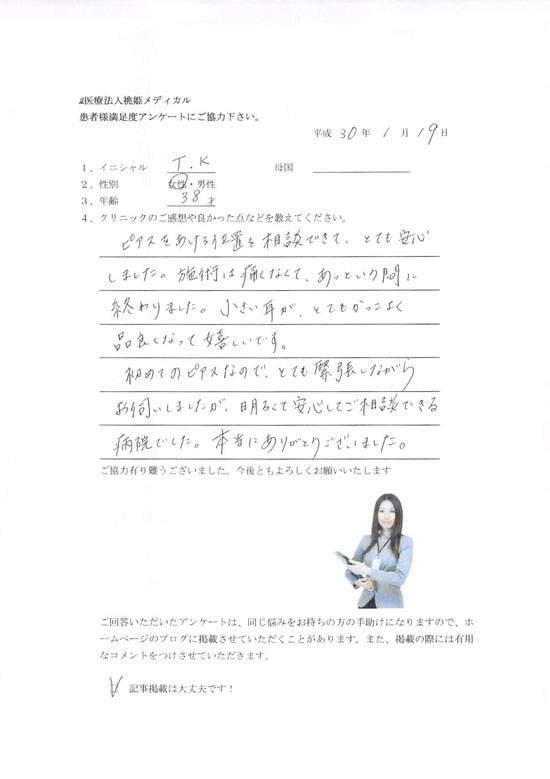 医療法人桃姫メディカル
患者様満足度アンケートにご協力下さい。
平成 30 年 1 月 19 日
1、イニシャル T.K 母国
2、性別 女性・男性
3、年齢 38 才
4、クリニックのご感想や良かった点などを教えてください。
ピアスをあける位置を相談できて、とても安心
しました。施術は痛くなくて、あっという間に
終わりました。小さい耳が、とてもかっこよく
品良くなって嬉しいです。
初めてのピアスなので、とても緊張しながら
お伺いしましたが、明るくて安心してご相談できる
病院でした。本当にありがとうございました。
ご協力有り難うございました。今後ともよろしくお願いいたします
ご回答いただいたアンケートは、同じ悩みをお持ちの方の手助けになりますので、ホ
ームページのブログに掲載させていただくことがあります。また、掲載の際には有用
なコメントをつけさせていただきます。
記事掲載は大丈夫です！